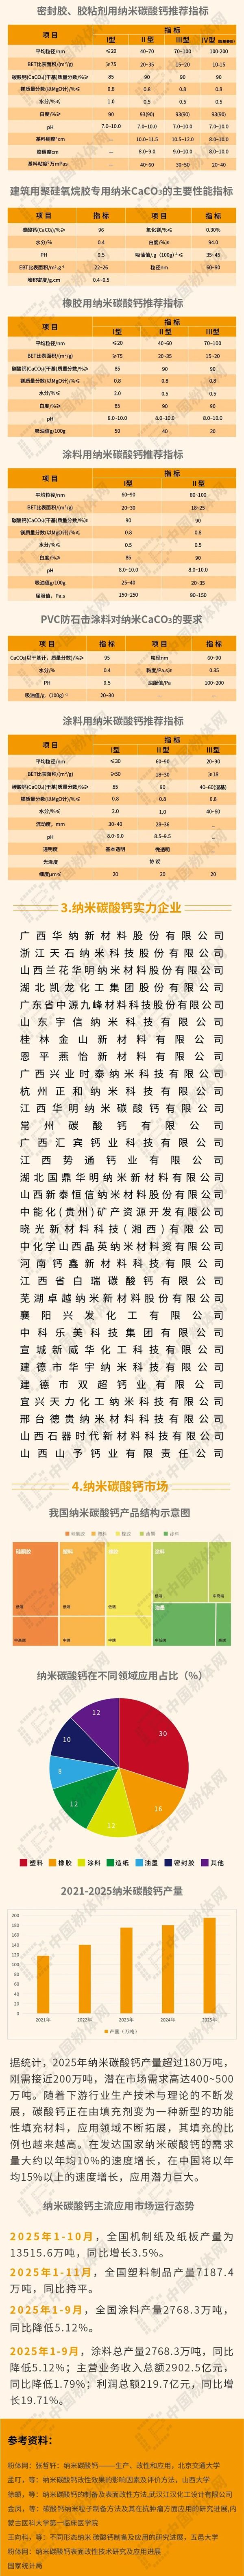 密封胶、胶粘剂用纳米碳酸钙推荐指标
项 目 指 标
I型 II型 III型 IV型
平均粒径/nm ≤20 40~70 70~100 100-200
BET比表面积/(m²/g) ≥75 20~35 15~20 10-15
碳酸钙(CaCO₃)(干基)质量分数/%≥ 85 90 90 90
镁质量分数(以MgO计)/%≤ 0.8 0.8 0.8 0.8
水分/%≤ 1.0 0.5 0.5 0.5
白度/%≥ 90 93(90) 93(90) 93(90)
pH 7.0~10.0 7.0~10.0 7.0~10.0 7.0~10.0
基料稠度°cm — 10.0~11.5 10.5~12.0 8.0~10.0
胶稠度cm — 8.0~9.0 9.0~10.0 8.0~10.0
基料粘度°万mPas — 40~60 30~50 20~40
建筑用聚硅氧烷胶专用纳米CaCO₃的主要性能指标
项 目 指 标 项 目 指 标
碳酸钙(CaCO₃)/%≥ 96 氧化镁/%≤ 0.30%
水分/% 0.4 白度/%≥ 94.0
PH 9.5 吸油值/.g (100g)⁻¹≤ 35~45
EBT比表面积/m².g⁻¹ 22~26 粒径nm 60~80
堆积密度/g.cm 0.4~0.5
橡胶用纳米碳酸钙推荐指标
项 目 指 标
I型 II型 III型
平均粒径/nm ≤20 40~60 70~100
BET比表面积/(m²/g) ≥75 20~35 15~20
碳酸钙(CaCO₃)(干基)质量分数/%≥ 85 90 90
镁质量分数(以MgO计)/%≤ 0.8 0.8 0.8
水分/%≤ 2.0 0.5 0.5
白度/%≥ 85 90 90
pH 8.0~10.0 8.0~10.0 8.0~10.0
吸油值g/100g 50 40 30
涂料用纳米碳酸钙推荐指标
项 目 指 标
I型 II型
平均粒径/nm 60~90 80~100
BET比表面积/(m²/g) 20~30 18~25
碳酸钙(CaCO₃)(干基)质量分数/%≥ 90 90
镁质量分数(以MgO计)/%≤ 0.8 0.8
水分/%≤ 0.5 0.5
白度/%≥ 85 90
pH 8.0~10.0 8.0~10.0
吸油值g/100g 25~40 20~35
屈服值, Pa.s 150~250 90~150
PVC防石击涂料对纳米CaCO₃的要求
项 目 指 标 项 目 指 标
CaCO₃(以干基计，质量分数)/%≥ 95 粒径nm 60~90
水分/% 0.4 黏度/Pa.s≥ 0.35
PH 9.5 屈服值/Pa 100~200
吸油值/g. (100g)⁻¹ 20~30 — —
涂料用纳米碳酸钙推荐指标
项 目 指 标
I型 II型 III型
平均粒径/nm ≤30 60~90 20~90
BET比表面积/(m²/g) ≥50 18~30 ≥18
碳酸钙(CaCO₃)(干基)质量分数/%≥ 85 90 40~60(湿基)
镁质量分数(以MgO计)/%≤ 0.8 0.8 0.8
水分/%≤ 2.0 1.0 40~60
流动度，mm 30~40 28~36 _
pH 8.0~9.0 8.5~9.5 _
透明度 基本透明 微透明 _
光泽度 协 议
细度μm≤ 20 20 20
3.纳米碳酸钙实力企业
广西华纳新材料股份有限公司
浙江天石纳米科技股份有限公司
山西兰花华明纳米材料股份有限公司
湖北凯龙化工集团股份有限公司
广东省中源九峰材料科技股份有限公司
山东宇信纳米科技有限公司
桂林金山新材料有限公司
恩平燕怡新材料有限公司
广西兴业时泰纳米科技有限公司
杭州正和纳米科技有限公司
江西华明纳米碳酸钙有限公司
常州碳酸钙有限公司
广西汇宾钙业科技有限公司
江西势通钙业有限公司
湖北国鼎华明纳米新材料有限公司
山西新泰恒信纳米材料股份有限公司
中能化(贵州)矿产资源开发有限公司
晓光新材料科技(湘西)有限公司
中化学山西晶英纳米材料资有限公司
河南钙鑫新材料科技有限公司
江西省白瑞碳酸钙有限公司
芜湖卓越纳米新材料股份有限公司
襄阳兴发化工有限公司
中科乐美科技集团有限公司
宣城新威华化工科技有限公司
建德市华宇纳米科技有限公司
建德市双超钙业有限公司
宜兴天力化工纳米科技有限公司
邢台德贵纳米材料科技有限公司
山西石器时代新材料科技有限公司
山西山予钙业有限责任公司
4.纳米碳酸钙市场
我国纳米碳酸钙产品结构示意图
硅酮胶 塑料 橡胶 油墨 涂料
硅酮胶 塑料 橡胶 涂料
油墨
纳米碳酸钙在不同领域应用占比（%）
12 30
10
8
12 16
12
塑料 橡胶 涂料 造纸 油墨 密封胶 其他
2021-2025纳米碳酸钙产量
200
180
160
140
120
100
80
60
40
20
0
2021年 2022年 2023年 2024年 2025年
产量（万吨）
据统计，2025年纳米碳酸钙产量超过180万吨，
刚需接近200万吨，潜在市场需求高达400~500
万吨。随着下游行业生产技术与理论的不断发
展，碳酸钙正在由填充剂变为一种新型的功能
性填充材料，应用领域不断拓展，其填充的比
例也越来越高。在发达国家纳米碳酸钙的需求
量大约以年均10%的速度增长，在中国将以年
均15%以上的速度增长，应用潜力巨大。
纳米碳酸钙主流应用市场运行态势
2025年1-10月，全国机制纸及纸板产量为
13515.6万吨，同比增长3.5%。
2025年1-11月，全国塑料制品产量7187.4
万吨，同比持平。
2025年1-9月，全国涂料产量2768.3万吨，
同比降低5.12%；
2025年1-9月，涂料总产量2768.3万吨，同比
降低5.12%；主营业务收入总额2902.5亿元，
同比降低1.79%；利润总额219.7亿元，同比增
长19.71%。
参考资料：
粉体网：张哲轩：纳米碳酸钙——生产、改性和应用，北京交通大学
孟叮，等：纳米碳酸钙改性效果的影响因素及评价方法，山西大学
徐頔，等：纳米碳酸钙的制备及表面改性方法,武汉江汉化工设计有限公司
金凤，等：碳酸钙纳米粒子制备方法及其在抗肿瘤方面应用的研究进展,内
蒙古医科大学第一临床医学院
王向科，等：不同形态纳米 碳酸钙制备及应用的研究进展，五邑大学
粉体网：纳米碳酸钙表面改性技术研究及应用进展
国家统计局